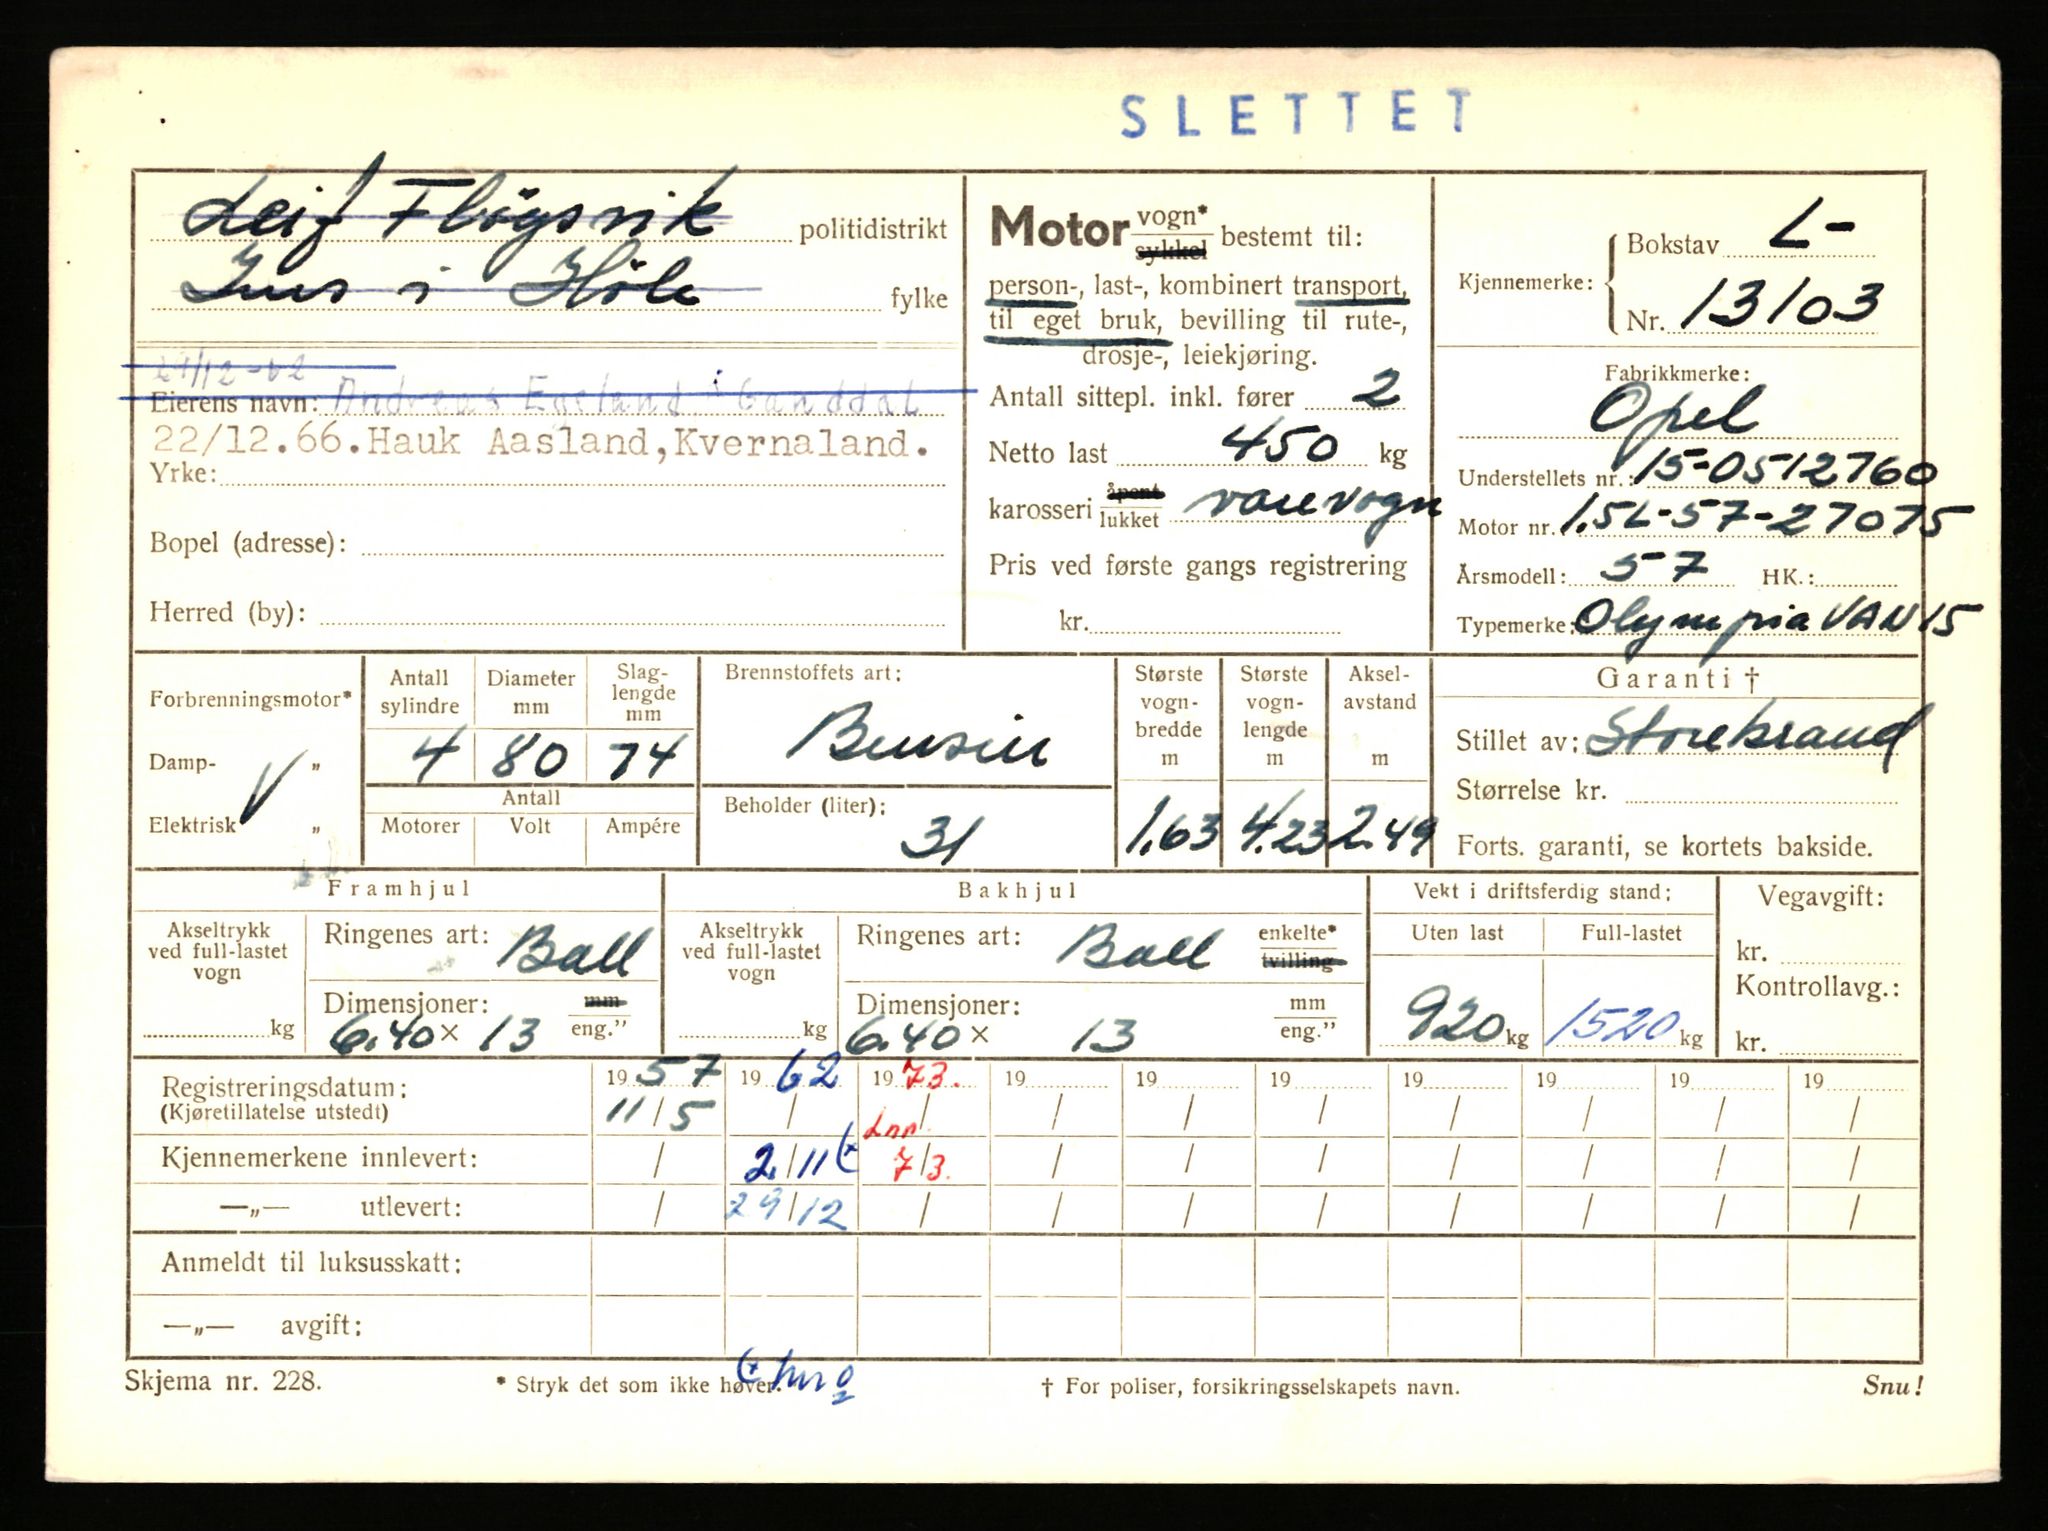 SLETTET
Leif Fløgsvik politidistrikt
Ims i Høle fylke
29/12-62
Eierens navn: Andreas Egeland Ganddal
22/12.66.Hauk Aasland,Kvernaland.
Yrke:
Bopel (adresse):
Herred (by):
Motor vogn* sykkel bestemt til:
person-, last-, kombinert transport,
til eget bruk, bevilling til rute-,
drosje-, leiekjøring.
Antall sittepl. inkl. fører 2
Netto last 450 kg
karosseri åpent lukket varevogn
Pris ved første gangs registrering
kr.
Kjennemerke: Bokstav L-
Nr. 13103
Fabrikkmerke:
Opel
Understellets nr.: 15-0512760
Motor nr. 1.5L-57-27075
Årsmodell: 57 HK.:
Typemerke: Olympia VAN 15
Forbrenningsmotor*
Damp- „
Elektrisk „
V
Antall sylindre
4
Diameter mm
80
Slag-
lengde
mm
74
Antall
Motorer Volt Ampére
Brennstoffets art:
Bensin
Beholder (liter):
31
Største
vogn-
bredde
m
1.63
Største
vogn-
lengde
m
4.23
Aksel-
avstand
m
2.49
Garanti †
Stillet av: Storebrand
Størrelse kr.
Forts. garanti, se kortets bakside.
Framhjul
Akseltrykk
ved full-lastet
vogn
kg
Ringenes art: Ball
Dimensjoner: mm
6.40 × 13 eng.”
Bakhjul
Akseltrykk
ved full-lastet
vogn
kg
Ringenes art: Ball enkelte* tvilling
Dimensjoner: mm
6.40 × 13 eng.”
Vekt i driftsferdig stand:
Uten last Full-lastet
920 kg 1520 kg
Vegavgift:
kr.
Kontrollavg.:
kr.
Registreringsdatum: 19 57 19 62 19 73. 19 19 19 19 19 19 19
(Kjøretillatelse utstedt) 11/5 / / / / / / / / /
Inn.
Kjennemerkene innlevert: / 2/11 (* 7/3. / / / / / / /
—„— utlevert: / 29/12 / / / / / / / /
Anmeldt til luksusskatt:
—„— avgift:
Skjema nr. 228. * Stryk det som ikke høver. (* † For poliser, forsikringsselskapets navn. Snu!